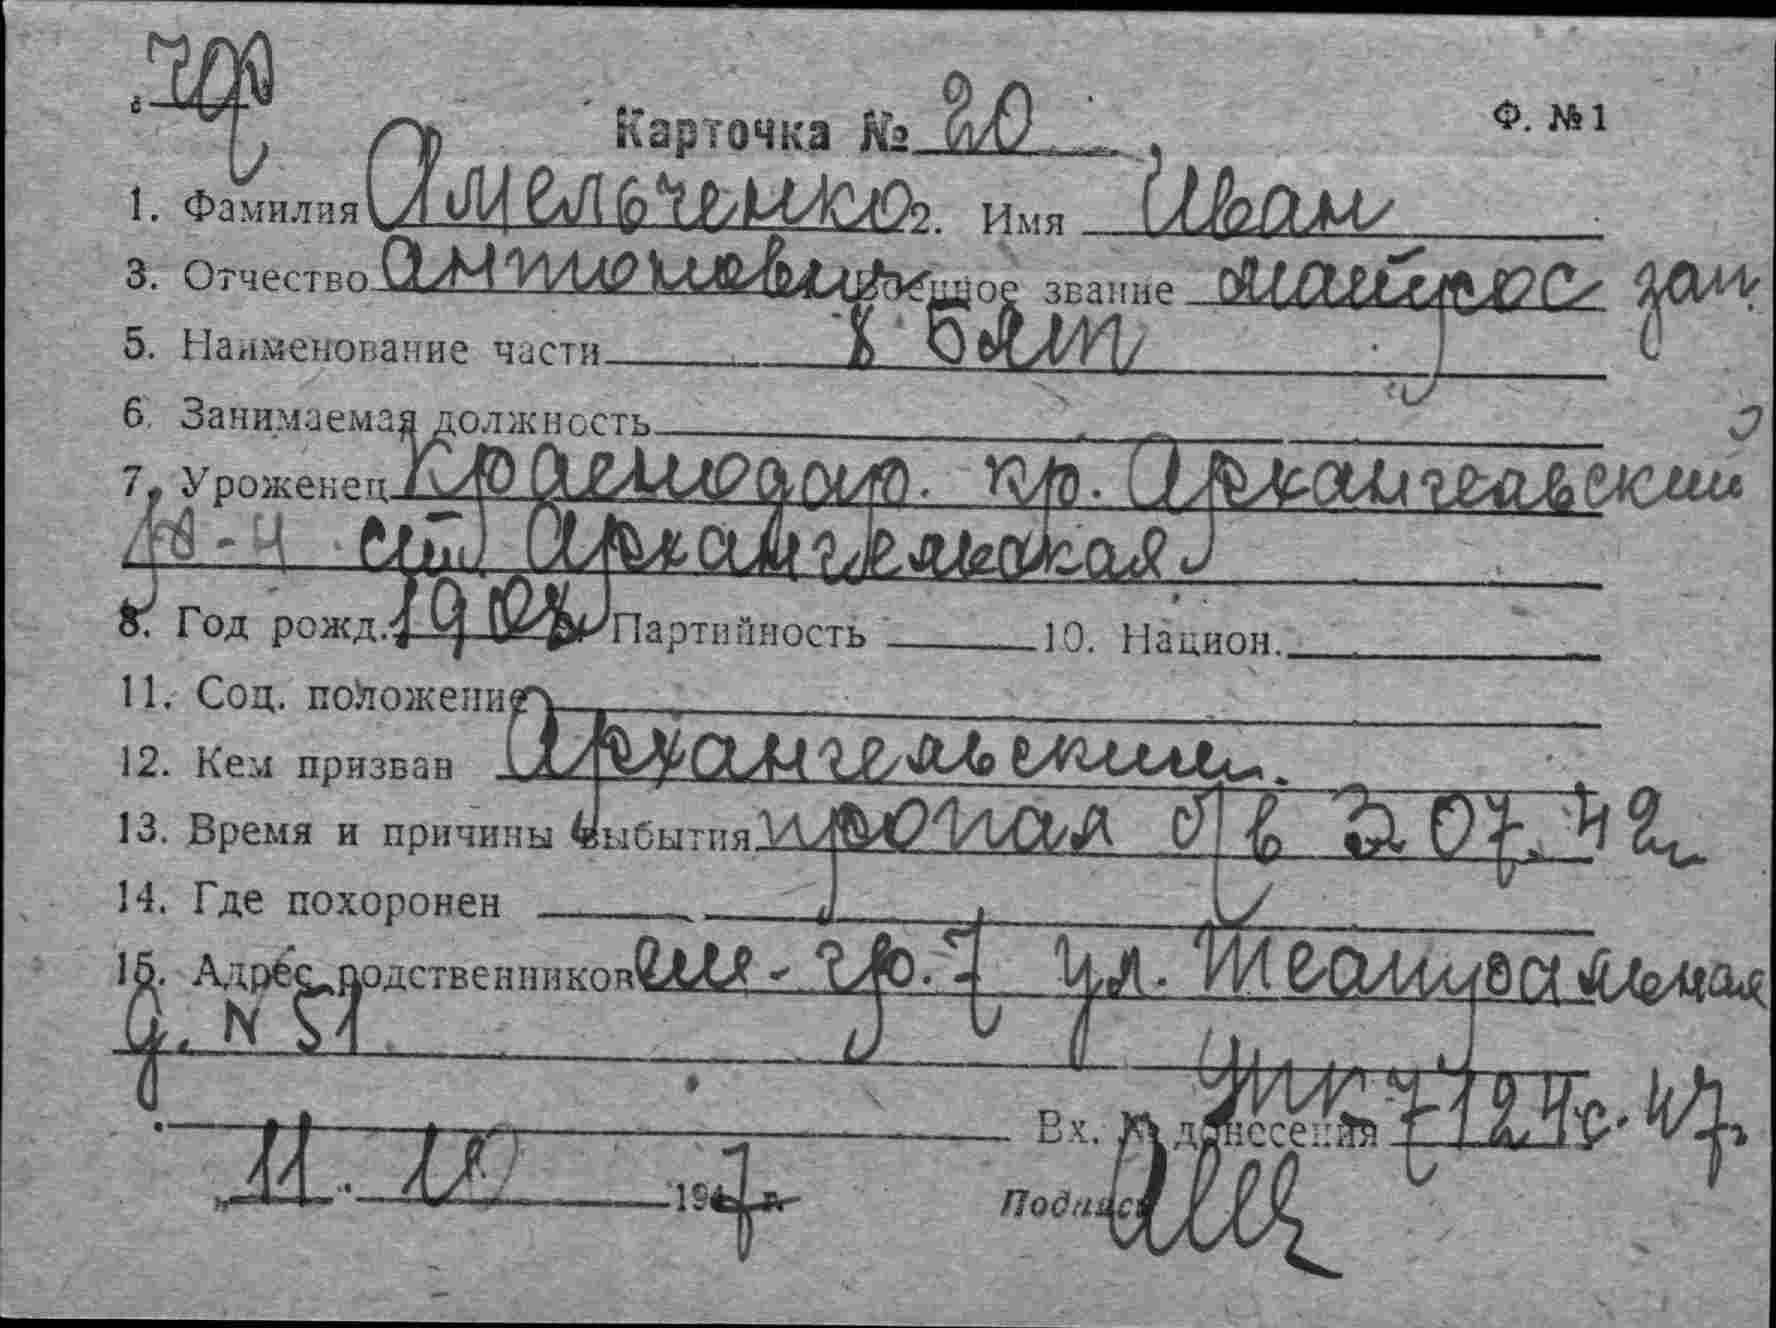 чф
Карточка № 20
Ф. № 1
1. Фамилия Амельченко 2. Имя Иван
3. Отчество Антонович Военное звание матрос зап.
5. Наименование части 8 Бят
6. Занимаемая должность
7. Уроженец Краснодар. кр. Архангельский
р-н ст. Архангельская
8. Год рожд. 1908 Партийность 10. Национ.
11. Соц. положение
12. Кем призван Архангельским.
13. Время и причины выбытия пропал б/в 3.07.42г.
14. Где похоронен
15. Адрес родственников гр. 7 ул. Театральная
д. N 51
Вх. № донесения 7124с. 47г.
„11. 10 1947 г.
Подпись